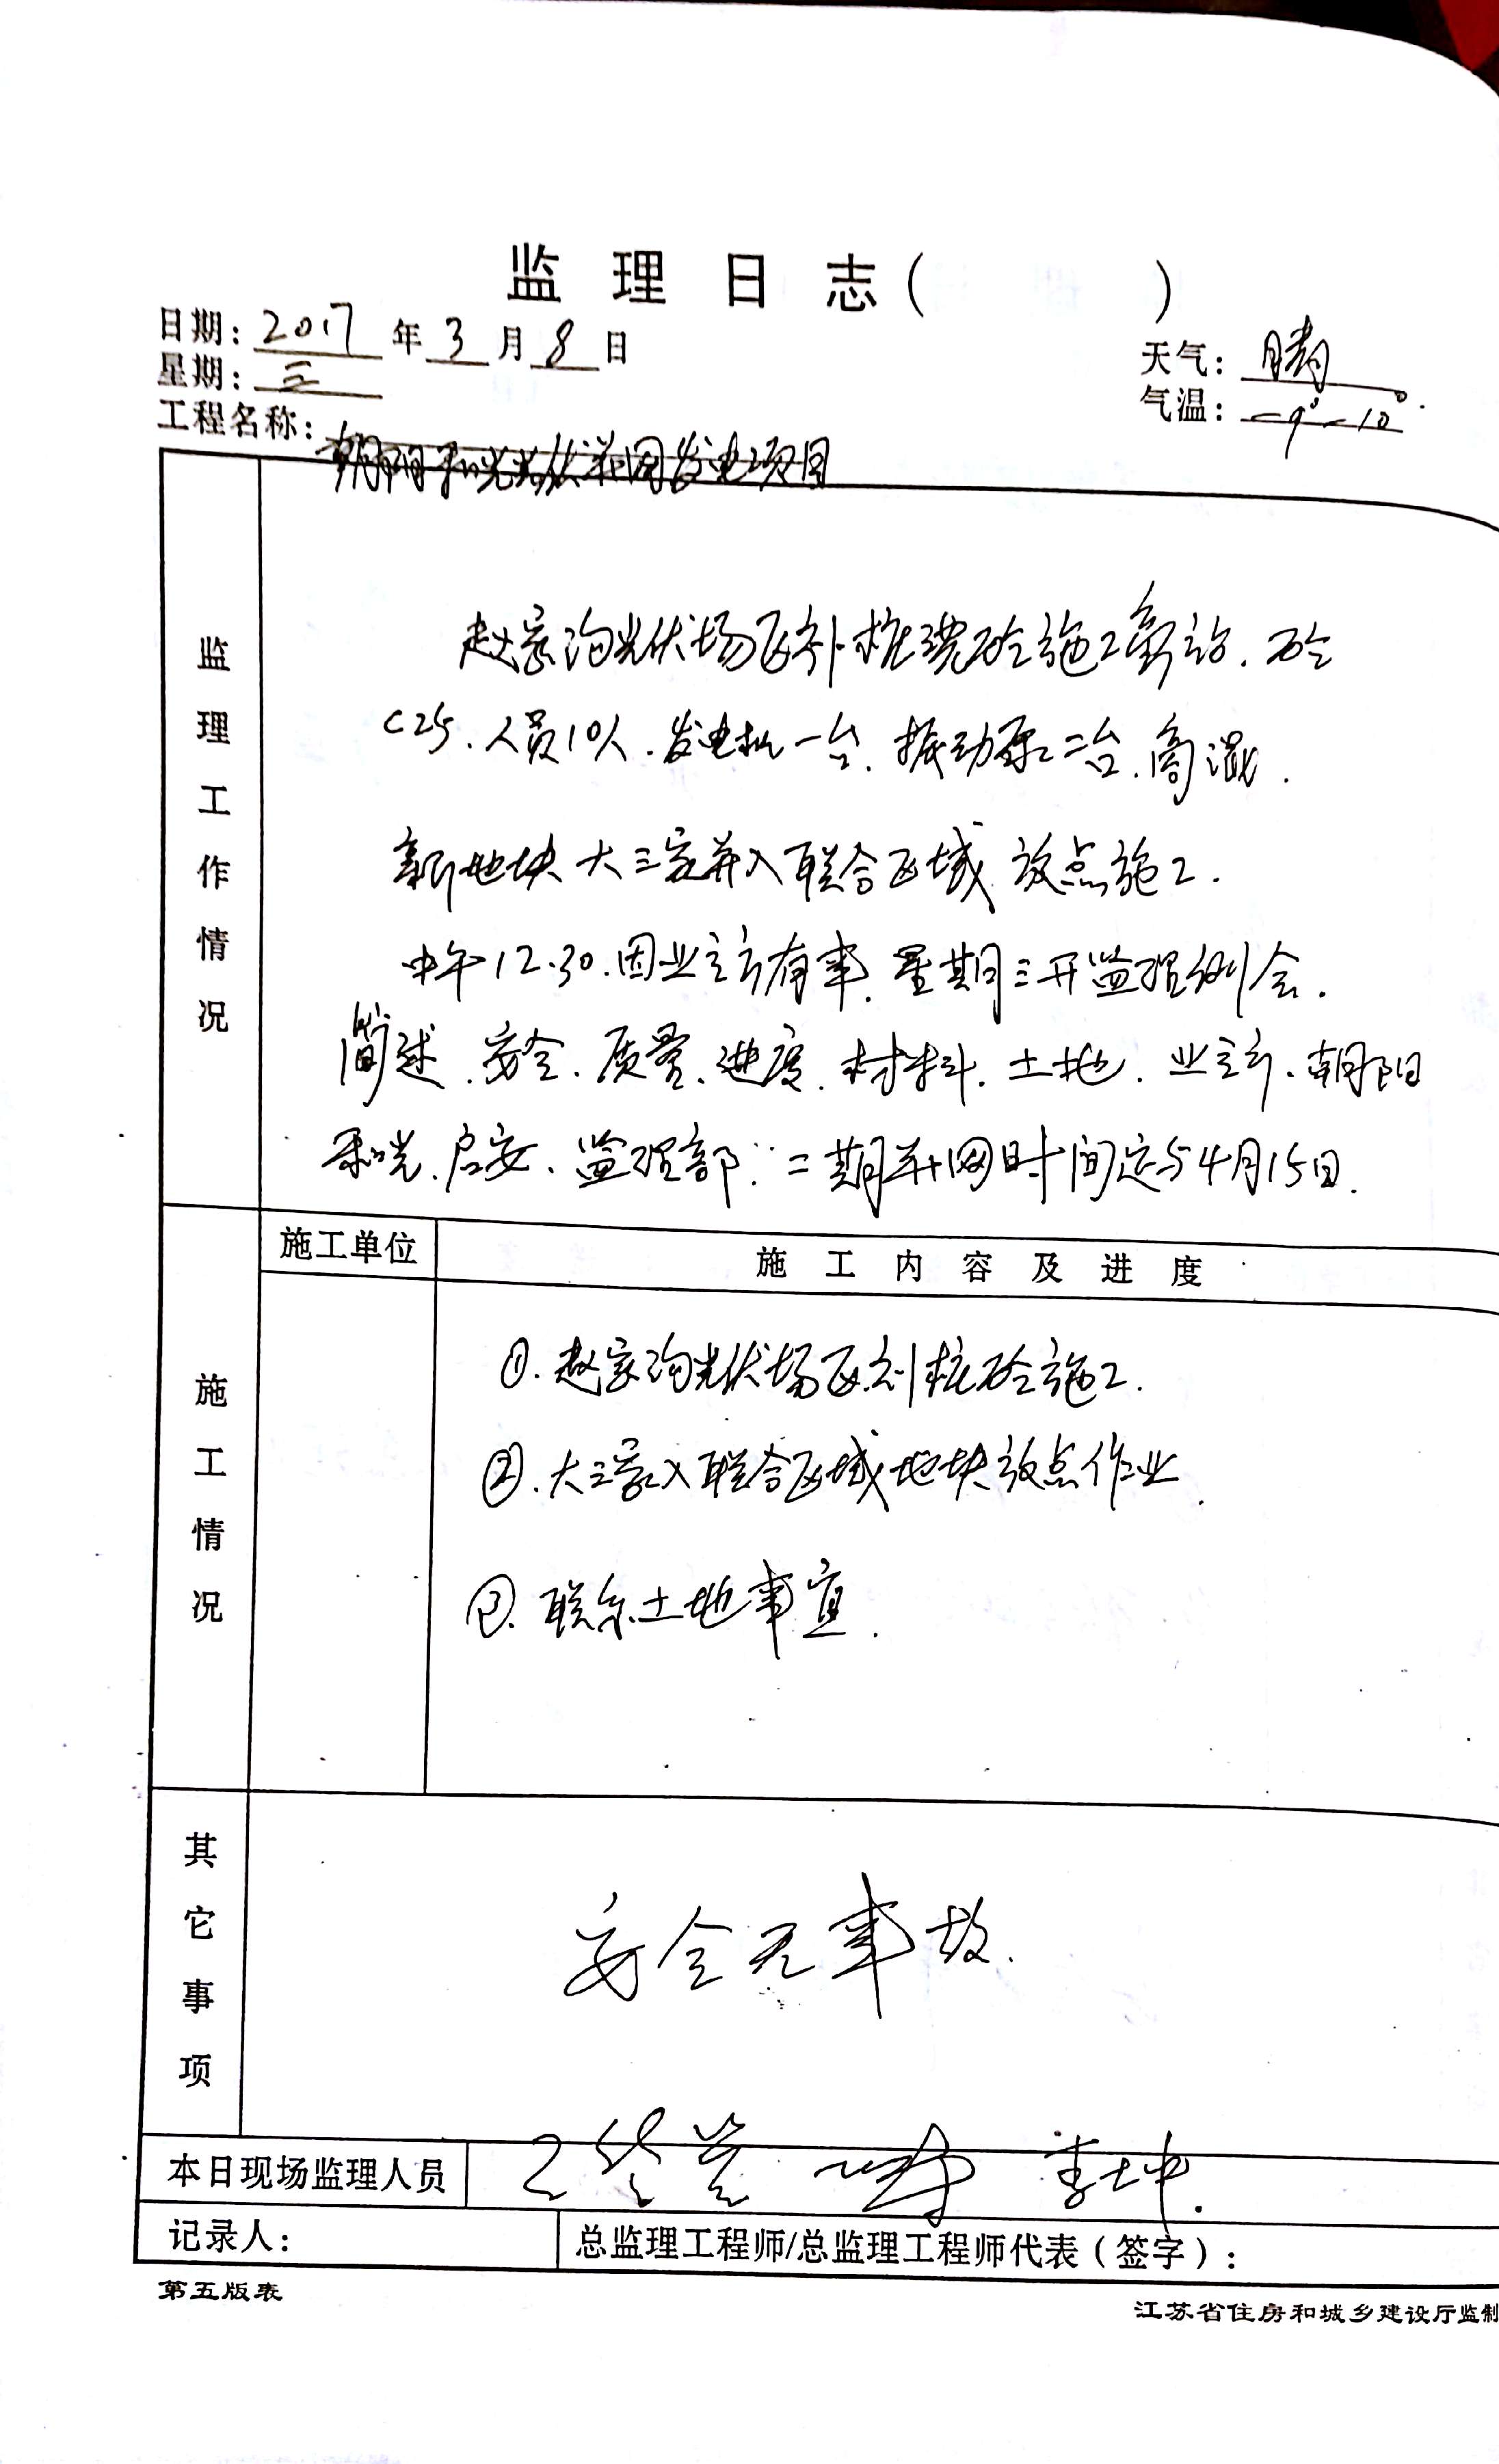 监理日志( )
日期: 2017 年 3 月 8 日
星期: 三
天气: 晴
气温: -9°-10°.
工程名称: 朝阳和光光伏 发电项目
监理工作情况
赵家沟光伏场区补桩浇砼施工 . 砼
C25. 人员10人. 发电机一台. 振动泵二台. 商混.
新地块大三家并入联合区域放点施工.
中午12.30. 因业主方有事. 星期三开监理例会.
简述. 安全. 质量. 进度. 材料. 土地. 业主方. 朝阳
和光. 启安. 监理部. 二期并网时间定与4月15日.
施工情况
施工单位
施工内容及进度
①. 赵家沟光伏场区 桩砼施工.
②. 大三家入联合区域地块放点作业.
③. 联系土地事宜.
其它事项
安全无事故.
本日现场监理人员 李坤.
记录人:
总监理工程师/总监理工程师代表(签字):
第五版表
江苏省住房和城乡建设厅监制